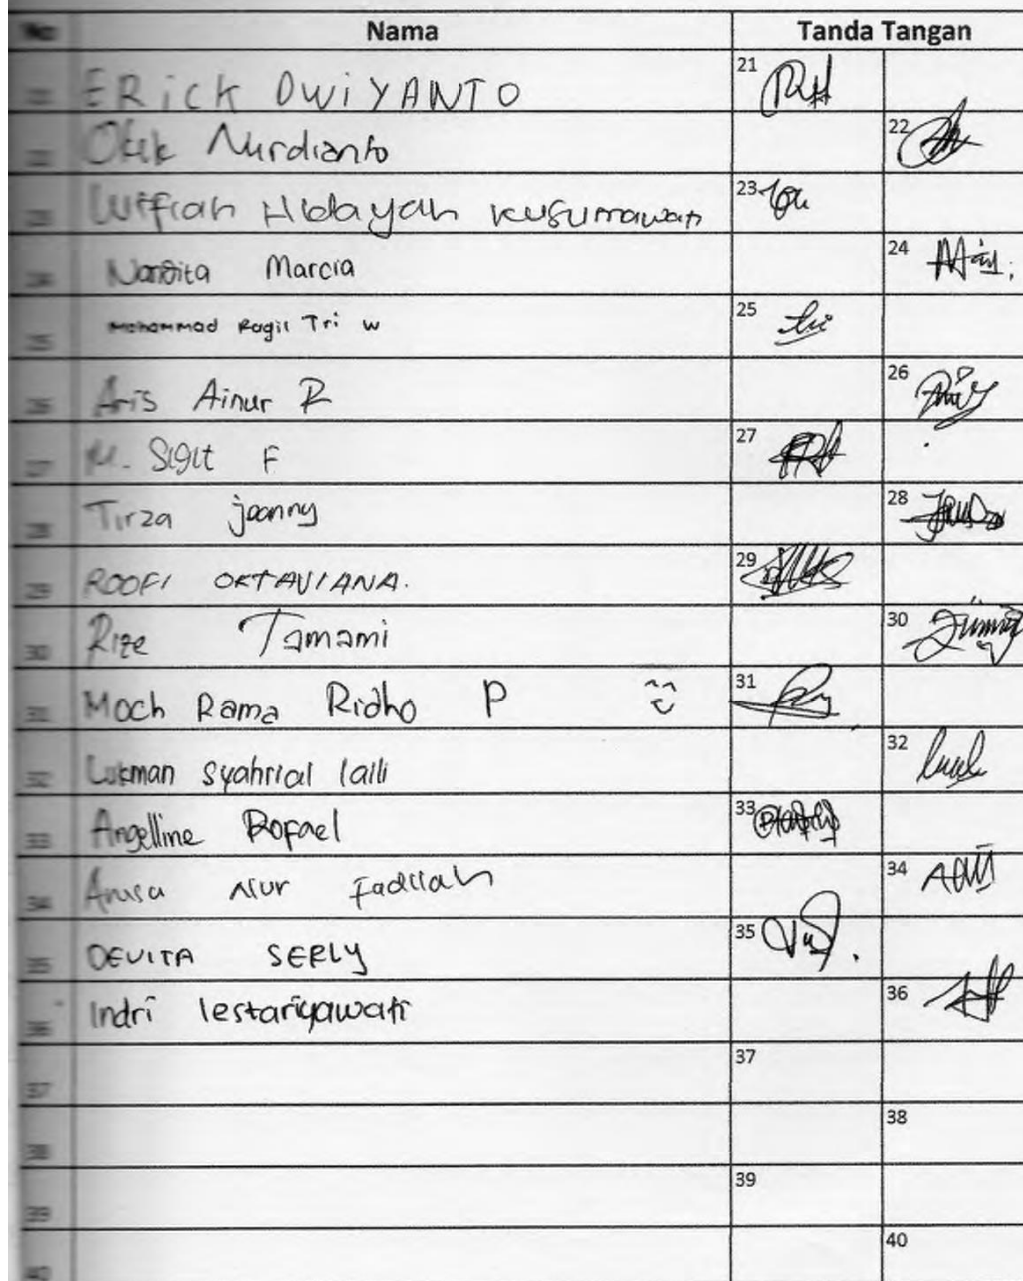 No Nama Tanda Tangan
21 ERicK DWiYANTO 21
22 Nurdianto 22
23 Hidayah Kusumawati 23
24 Nandita Marcia 24
25 Mohammad Ragil Tri W 25
26 Aris Ainur R 26
27 M. Sigit F 27
28 Tirza joanny 28
29 ROOFI OKTAVIANA. 29
30 Rize Tamami 30
31 Moch Rama Ridho P 31
32 Lukman Syahrial laili 32
33 Angelline Rofael 33
34 Anisa Nur Fadilah 34
35 DEVITA SERLY 35
36 Indri lestariyawati 36
37 37
38 38
39 39
40 40